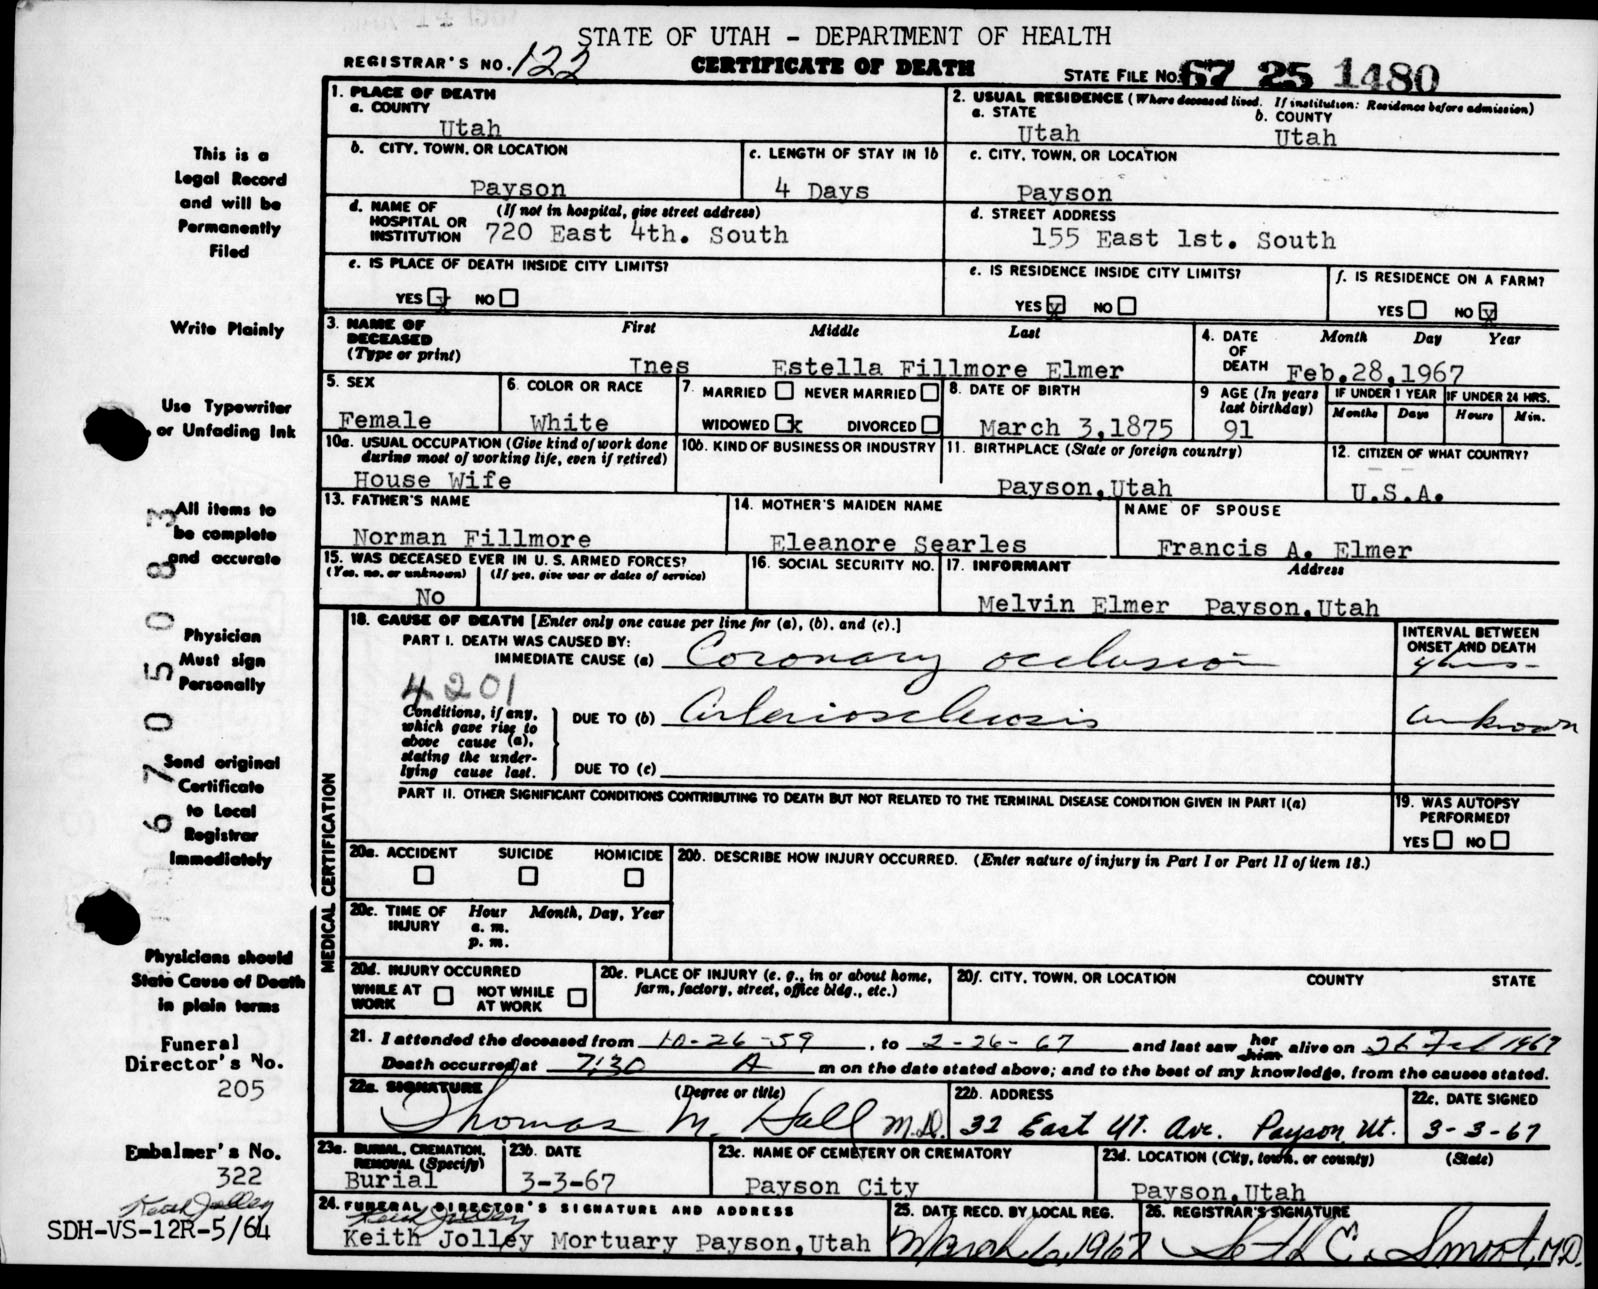 STATE OF UTAH - DEPARTMENT OF HEALTH
REGISTRAR'S NO. 122 CERTIFICATE OF DEATH STATE FILE NO. 67 25 1480
1. PLACE OF DEATH
a. COUNTY
Utah
2. USUAL RESIDENCE (Where deceased lived. If institution: Residence before admission)
a. STATE b. COUNTY
Utah Utah
b. CITY, TOWN, OR LOCATION c. LENGTH OF STAY IN 1b c. CITY, TOWN, OR LOCATION
Payson 4 Days Payson
d. NAME OF HOSPITAL OR INSTITUTION (If not in hospital, give street address)
720 East 4th. South
d. STREET ADDRESS
155 East 1st. South
e. IS PLACE OF DEATH INSIDE CITY LIMITS?
YES x NO
e. IS RESIDENCE INSIDE CITY LIMITS?
YES x NO
f. IS RESIDENCE ON A FARM?
YES NO x
3. NAME OF DECEASED (Type or print) First Middle Last
Ines Estella Fillmore Elmer
4. DATE OF DEATH Month Day Year
Feb.28,1967
5. SEX
Female
6. COLOR OR RACE
White
7. MARRIED NEVER MARRIED
WIDOWED x DIVORCED
8. DATE OF BIRTH
March 3,1875
9 AGE (In years last birthday)
91
IF UNDER 1 YEAR IF UNDER 24 HRS.
Months Days Hours Min.
10a. USUAL OCCUPATION (Give kind of work done during most of working life, even if retired)
House Wife
10b. KIND OF BUSINESS OR INDUSTRY
11. BIRTHPLACE (State or foreign country)
Payson,Utah
12. CITIZEN OF WHAT COUNTRY?
U.S.A.
13. FATHER'S NAME
Norman Fillmore
14. MOTHER'S MAIDEN NAME
Eleanore Searles
NAME OF SPOUSE
Francis A. Elmer
15. WAS DECEASED EVER IN U. S. ARMED FORCES?
(Yes, no, or unknown) (If yes, give war or dates of service)
No
16. SOCIAL SECURITY NO.
17. INFORMANT Address
Melvin Elmer Payson,Utah
MEDICAL CERTIFICATION
18. CAUSE OF DEATH [Enter only one cause per line for (a), (b), and (c).]
PART I. DEATH WAS CAUSED BY:
IMMEDIATE CAUSE (a) Coronary occlusion
INTERVAL BETWEEN ONSET AND DEATH
4201
Conditions, if any, which gave rise to above cause (a), stating the underlying cause last.
DUE TO (b) Arteriosclerosis unknown
DUE TO (c)
PART II. OTHER SIGNIFICANT CONDITIONS CONTRIBUTING TO DEATH BUT NOT RELATED TO THE TERMINAL DISEASE CONDITION GIVEN IN PART I(a)
19. WAS AUTOPSY PERFORMED?
YES NO
20a. ACCIDENT SUICIDE HOMICIDE
20b. DESCRIBE HOW INJURY OCCURRED. (Enter nature of injury in Part I or Part II of item 18.)
20c. TIME OF INJURY Hour Month, Day, Year
a. m.
p. m.
20d. INJURY OCCURRED
WHILE AT WORK NOT WHILE AT WORK
20e. PLACE OF INJURY (e. g., in or about home, farm, factory, street, office bldg., etc.)
20f. CITY, TOWN, OR LOCATION COUNTY STATE
21. I attended the deceased from 10-26-59, to 2-26-67 and last saw her him alive on 26 Feb 1967
Death occurred at 7:30 A m on the date stated above; and to the best of my knowledge, from the causes stated.
22a. SIGNATURE (Degree or title)
Thomas M. Hall M.D.
22b. ADDRESS
32 East Ut. Ave. Payson, Ut.
22c. DATE SIGNED
3-3-67
23a. BURIAL, CREMATION, REMOVAL (Specify)
Burial
23b. DATE
3-3-67
23c. NAME OF CEMETERY OR CREMATORY
Payson City
23d. LOCATION (City, town, or county) (State)
Payson,Utah
24. FUNERAL DIRECTOR'S SIGNATURE AND ADDRESS
Keith Jolley
Keith Jolley Mortuary Payson,Utah
25. DATE RECD. BY LOCAL REG.
March 6, 1967
26. REGISTRAR'S SIGNATURE
Seth C. Smoot, M.D.
This is a
Legal Record
and will be
Permanently
Filed
Write Plainly
Use Typewriter
or Unfading Ink
All items to
be complete
and accurate
Physician
Must sign
Personally
Send original
Certificate
to Local
Registrar
Immediately
06705083
Physicians should
State Cause of Death
in plain terms
Funeral
Director's No.
205
Embalmer's No.
322
Keith Jolley
SDH-VS-12R-5/64